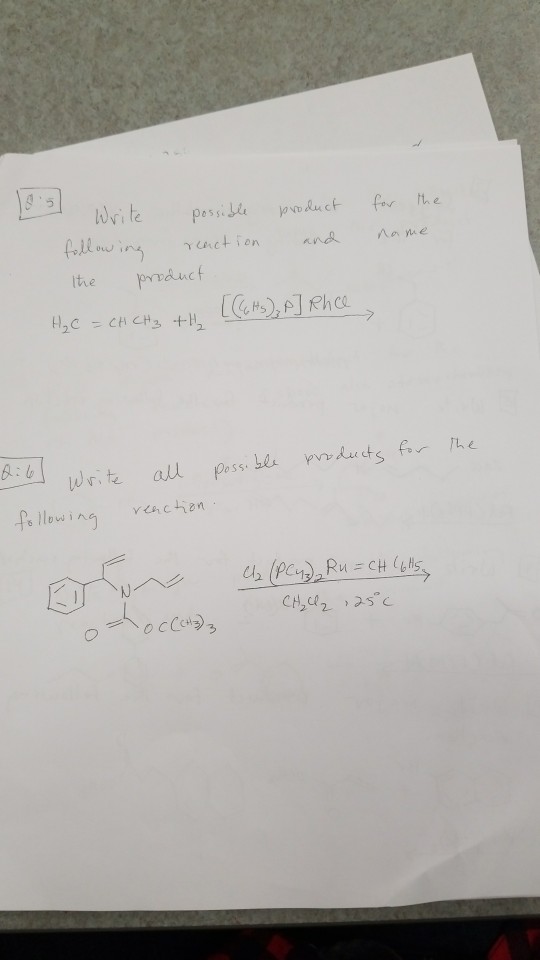 Q:5 Write possible product for the
following reaction and name
the product.
H₂C = CHCH₃ + H₂ [(C₆H₅)₃P] RhCl
Q:6 Write all possible products for the
following reaction.
N
O OC(CH₃)₃
Cl₂ (PCy₃)₂ Ru = CHC₆H₅
CH₂Cl₂, 25°C